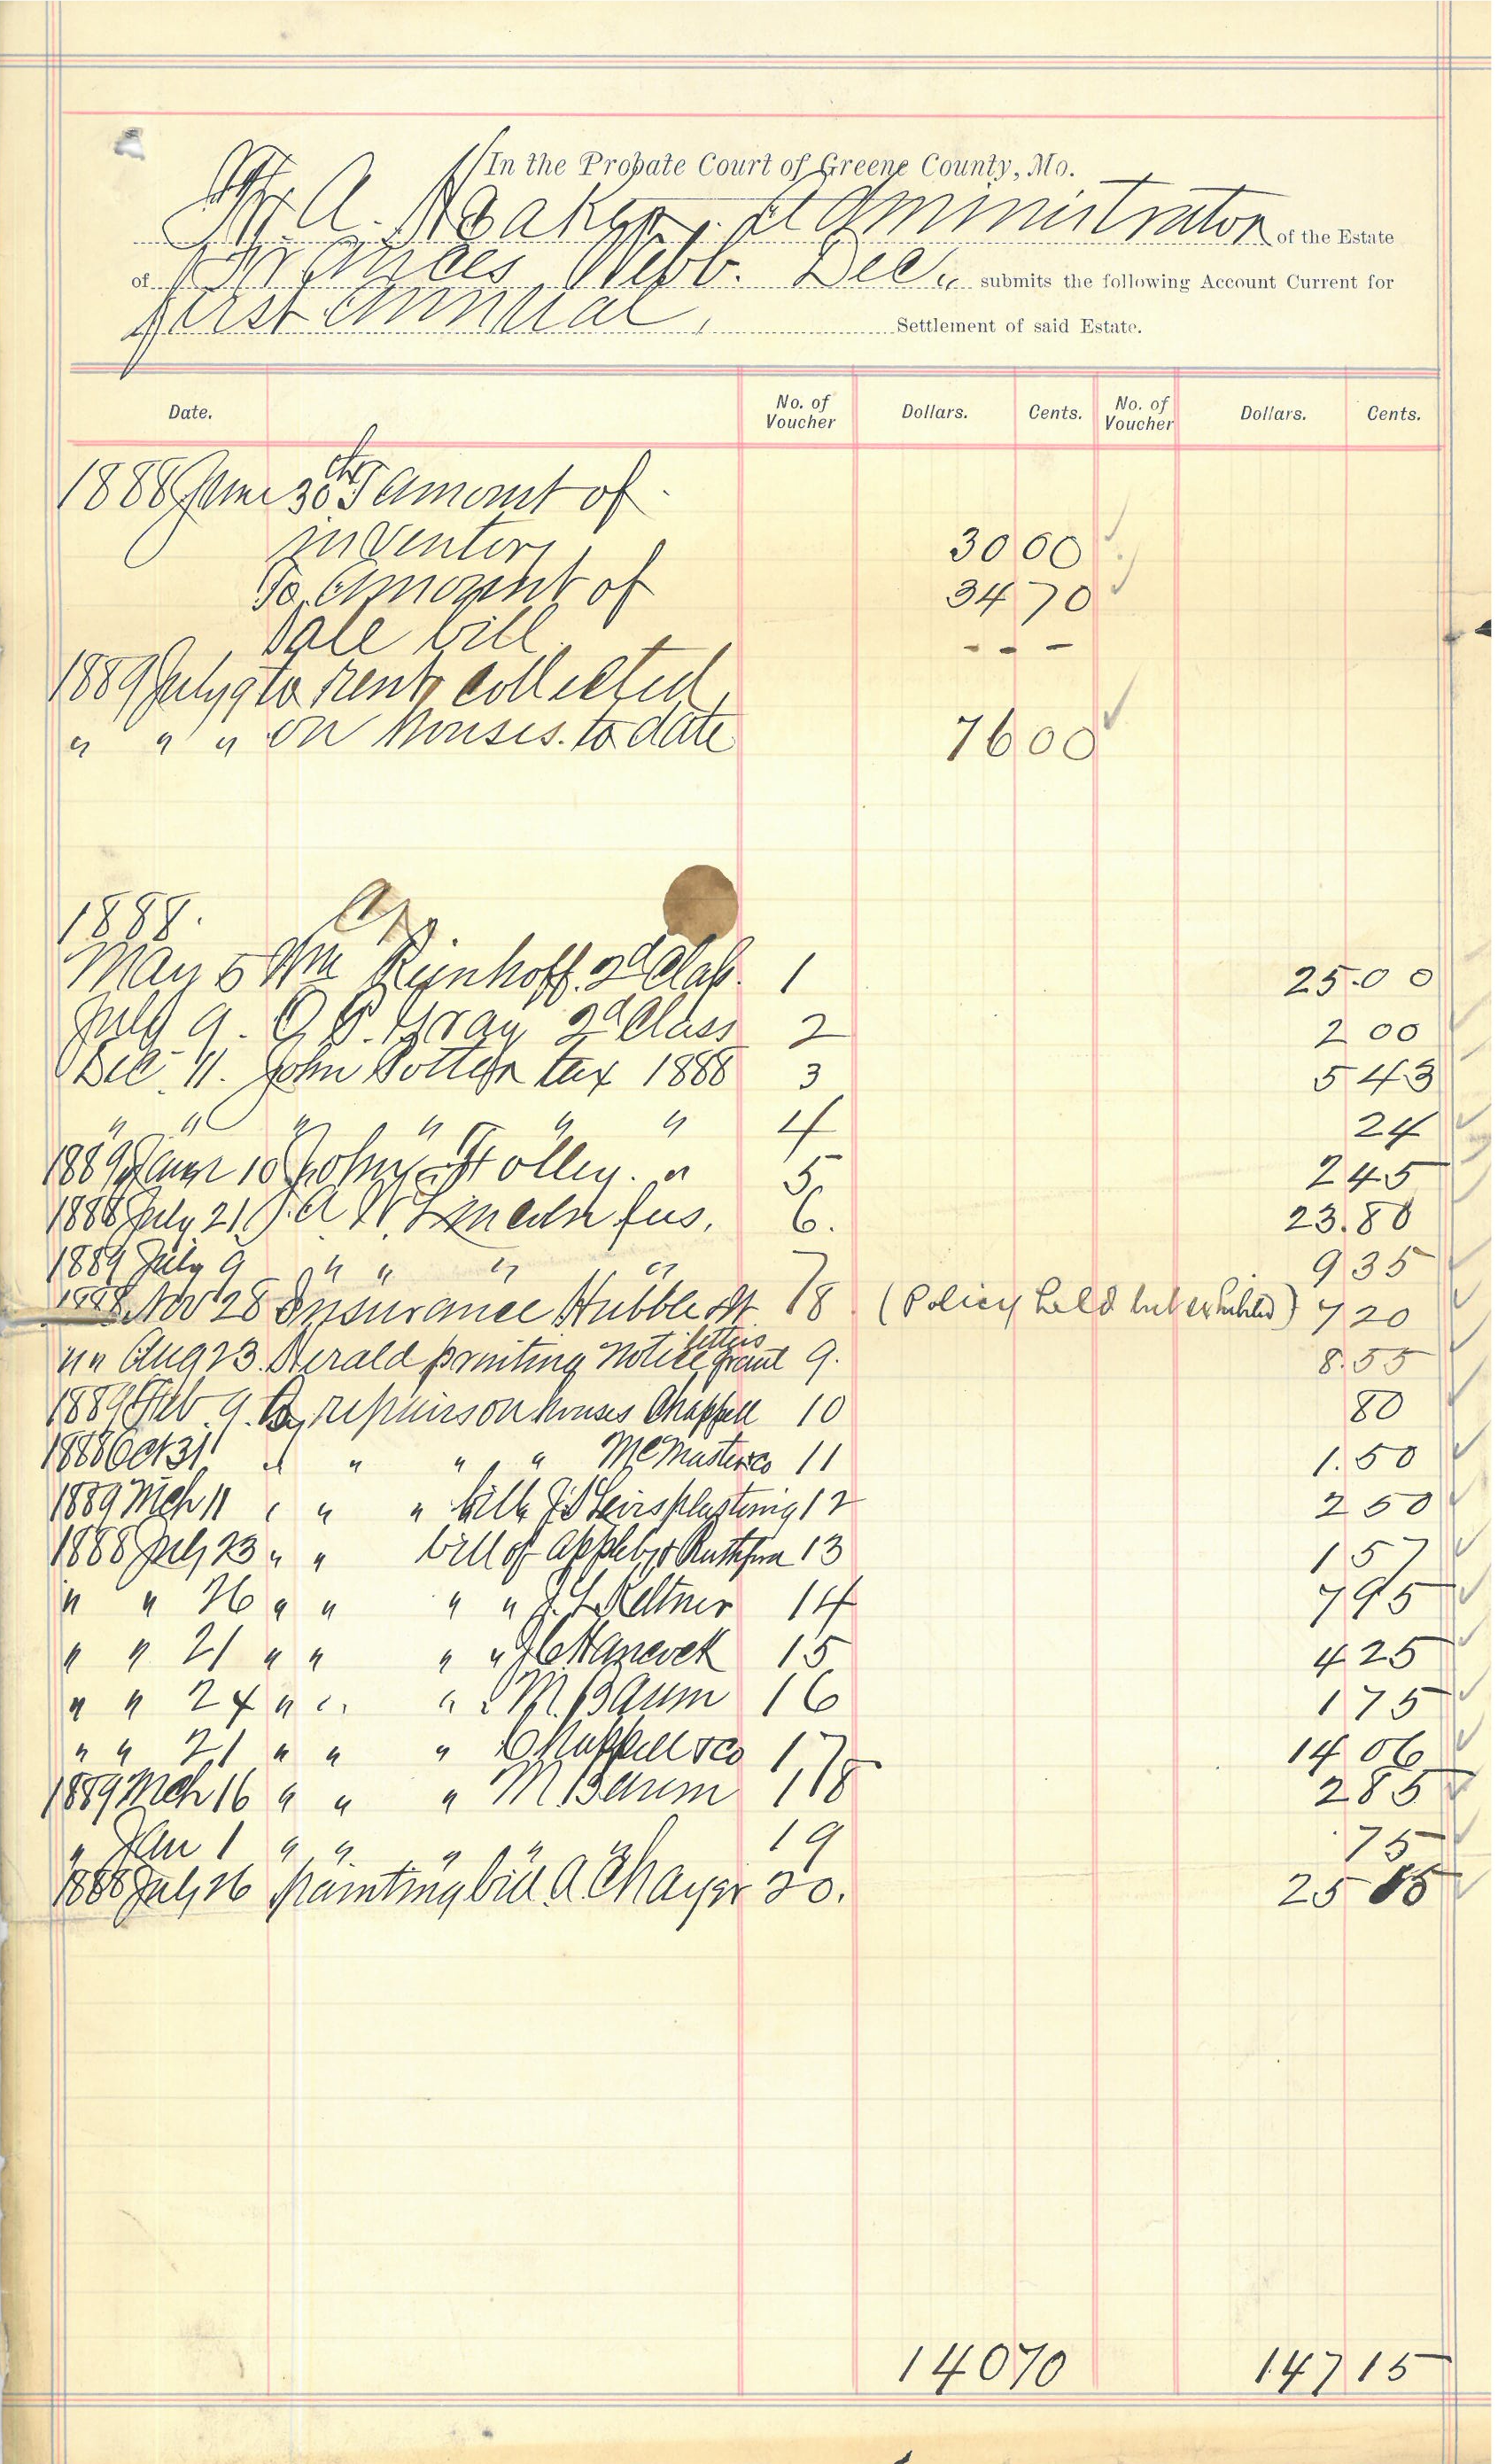 In the Probate Court of Greene County, Mo.
A. Baker, Administrator of the Estate
of Frances Webb. Dec" submits the following Account Current for
first annual, Settlement of said Estate.
Date. No. of Voucher Dollars. Cents. No. of Voucher Dollars. Cents.
1888 June 30th To amount of
inventory 30 00
To amount of 34 70
Sale bill. - - -
1889 July 9 to rent collected
" " " on houses. to date 76 00
1888.
May 5 Wm Rienhoff. 2d Class. 1 25.00
July 9. Gray 2d Class 2 2 00
Dec. 11. John Potter tax 1888 3 5 43
" " " " " " 4 24
1889 Jany 10 John Holley. " 5 2 45
1888 July 21 Lincoln fees, 6. 23.80
1889 July 9 " " " " 7 9 35
1888 Nov 28 Insurance Hubble 8 (Policy held but exhibited) 7 20
" " Aug 23. Herald printing notice letters grant 9. 8.55
1889 Feb. 9. By repairs on houses Chappell 10 80
1888 Oct 31 " " " " McMaster & co 11 1.50
1889 Mch 11 " " " bill plastering 12 2 50
1888 July 23 " " bill of Appleby & 13 1 57
" " 26 " " " " Keltner 14 7 95
" " 21 " " " " Hancock 15 4 25
" " 24 " " " " M. Baum 16 1 75
" " 21 " " " Chappell & co 17 14 06
1889 Mch 16 " " " M. Baum 18 2 85
" Jan 1 " " " " 19 75
1888 July 26 painting bill A. 20. 25 15
140 70 147 15